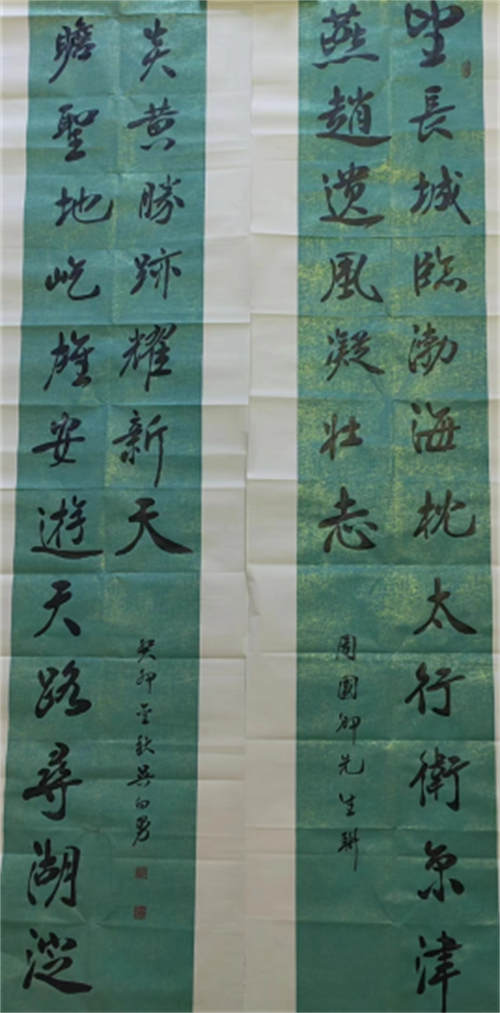 望長城臨渤海枕太行衛京津
燕趙遺風凝壮志
周國先生聯
瞻聖地屹雄安遊天路尋湖淀
炎黄勝跡耀新天
癸卯金秋吳勇